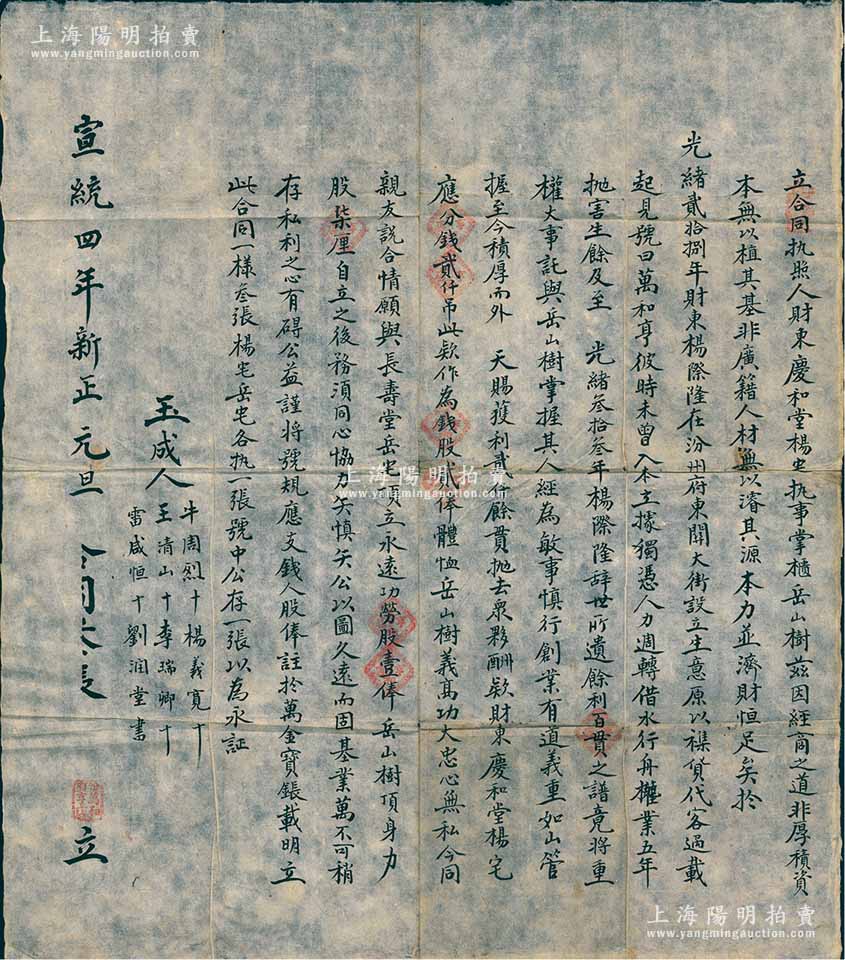 上海陽明拍賣
www.yangmingauction.com
上海陽明拍賣
www.yangmingauction.com
立合同执照人財東慶和堂楊宅执事掌櫃岳山樹茲因經商之道非厚積資
本無以植其基非廣籍人材無以濬其源本力並濟財恒足矣於
光緒貳拾捌年財東楊際隆在汾州府東關大街設立生意原以襍貨代客過載
起見號曰萬和亨彼時未曾入本立據獨憑人力週轉借水行舟權業五年
拋害生餘及至 光緒叁拾叁年楊際隆辞世所遺餘利百貫之譜竟將重
權大事託與岳山樹掌握其人經為敏事慎行創業有道義重如山管
握至今積厚而外 天賜獲利貳仟餘貫拋去衆夥酬欵財東慶和堂楊宅
應分錢貳仟吊此欵作為錢股弍俸體恤岳山樹義髙功大忠心無私今同
親友說合情願與長壽堂岳宅頂立永遠功勞股壹俸岳山樹頂身力
股柒厘自立之後務須同心恊力矢慎矢公以圖久遠而固基業萬不可稍
存私利之心有碍公益謹將號規應支錢人股俸註於萬金寶賬載明立
此合同一様叁張楊宅岳宅各执一張號中公存一張以為永証
玉成人
牛周烈十 楊義寬十
王清山十 李瑞卿十
雷咸恒十 劉润堂書
宣統四年新正元旦
立
上海陽明拍賣
www.yangmingauction.com